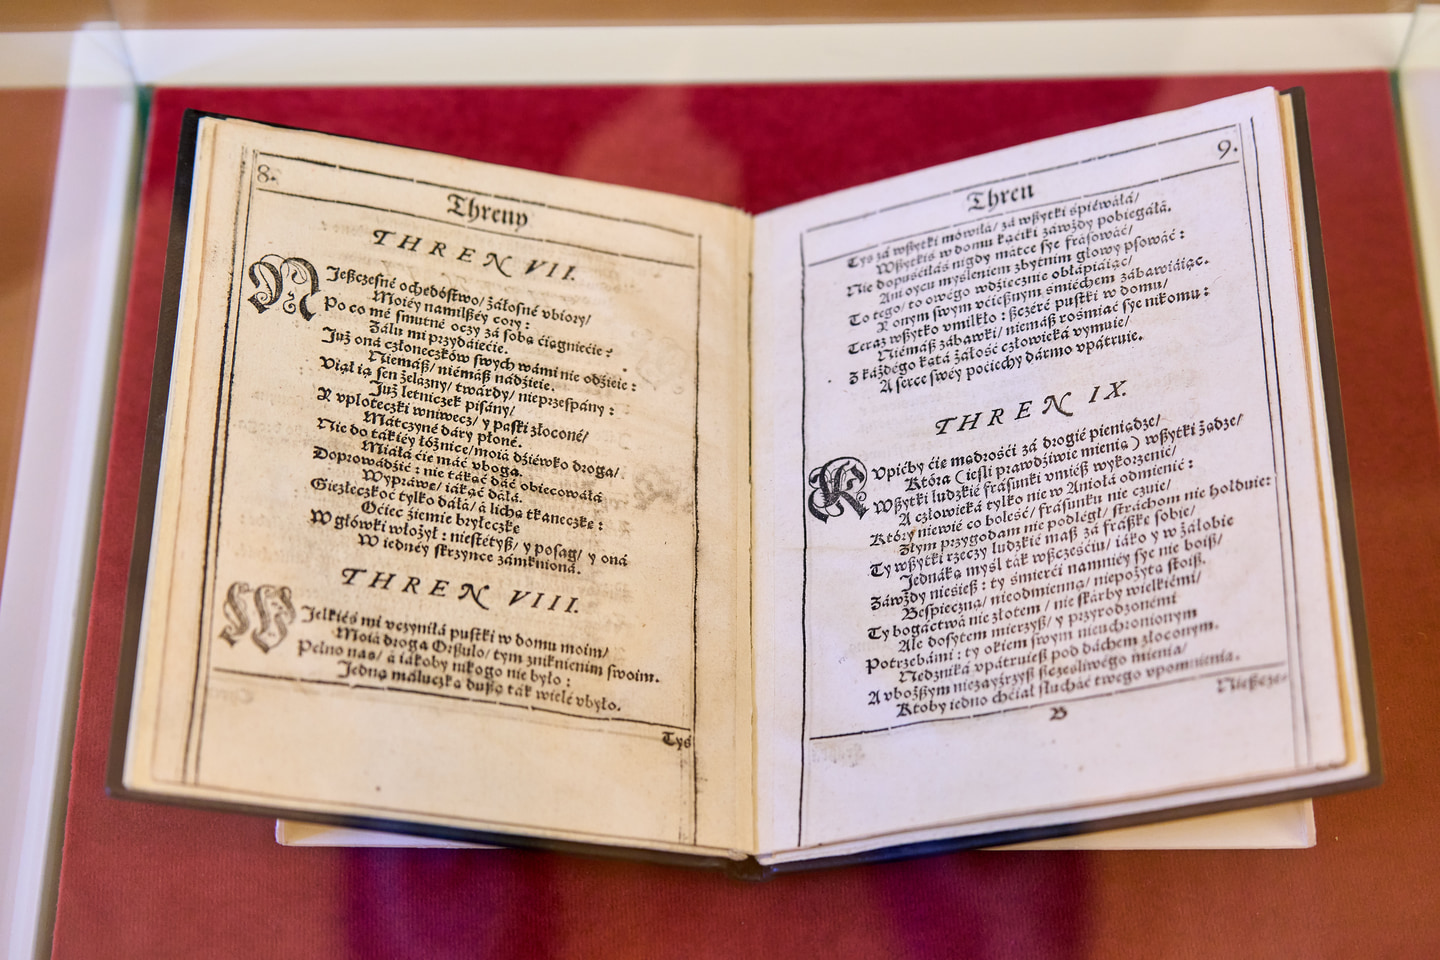 8.
Threny
THREN VII.
NJeßczesné ochędóstwo/ żáłosné vbiory/
Moiéy namilßéy cory:
Po co mé smutné oczy zá sobą ćiągniećie?
Żálu mi przydáiećie.
Już oná członeczków swych wámi nie odżieie:
Niemáß/ niémáß nádżieie.
Viął ią sen żelázny/ twárdy/ nieprzespány:
Już letniczek pisány/
Y vploteczki wniwecz/ y paski złoconé/
Mátczyné dáry płoné.
Nie do tákiéy łóżnice/ moiá dżiéwko droga/
Miałá ćie máć vboga
Doprowádżić: nie tákąć dáć obiecowáłá
Wypráwę/ iákąć dáłá.
Giezłeczkoć tylko dáłá/ á lichą tkaneczkę:
Oćiec żiemie bryłeczkę
W główki włożył: niestétyß/ y posag/ y oná
W iednéy skrzynce zámknioná.
THREN VIII.
WJelkieś mi vczyniłá pustki w domu moim/
Moiá droga Orßulo/ tym zniknienim swoim.
Pełno nas/ á iákoby nikogo nie było:
Jedną máluczką dußą ták wielé vbyło.
Tyś
9.
Thren
Tyś zá wßytki mówiłá/ zá wßytki śpiéwáłá/
Wßytkieś w domu kąćiki záwżdy pobiegáłá.
Nie dopuśćiłáś nigdy mátce sye frásowáć/
Ani oycu myśleniem zbytnim głowy psowáć:
To tego/ to owégo wdżiecznie obłápiáiąc/
Y onym swym vćießnym śmiéchem zábáwiáiąc.
Teraz wßytko vmilkło: ßczéré pustki w domu/
Niémáß zábawki/ niémáß rozśmiáć sye nikomu:
Z káżdégo kątá żáłość człowieká vymuie/
A serce swéy poćiechy dármo vpátruie.
THREN IX.
KVpićby ćie mądrośći zá drogié pieniądze/
Która (iesli prawdżiwie mienią) wßytki żądze/
Wßytki ludzkié frásunki vmiéß wykorzenić/
A człowieká tylko nie w Aniołá odmienić:
Który niewié co boleść/ frásunku nie czuie/
Złym przygodam nie podlégł/ stráchom nie hołduie:
Ty wßytki rzeczy ludzkié maß zá fráßkę sobie/
Jednáką myśl ták wßczęśćiu/ iáko y w żałobie
Záwżdy niesieß: ty śmierći namniéy sye nie boiß/
Bespieczna/ nieodmienna/ niepożyta stoiß.
Ty bogáctwá nie złotem/ nie skárby wielkiémi/
Ale dosytem mierzyß/ y przyrodzonémi
Potrzebámi: ty okiem swym nieuchronionym
Nędzniká vpátruieß pod dáchem złoconym.
A vboźßym niezayźrzyß ßczęsliwégo mienia/
Ktoby iedno chćiał słucháć twégo vpomnienia.
B
Nießczę-